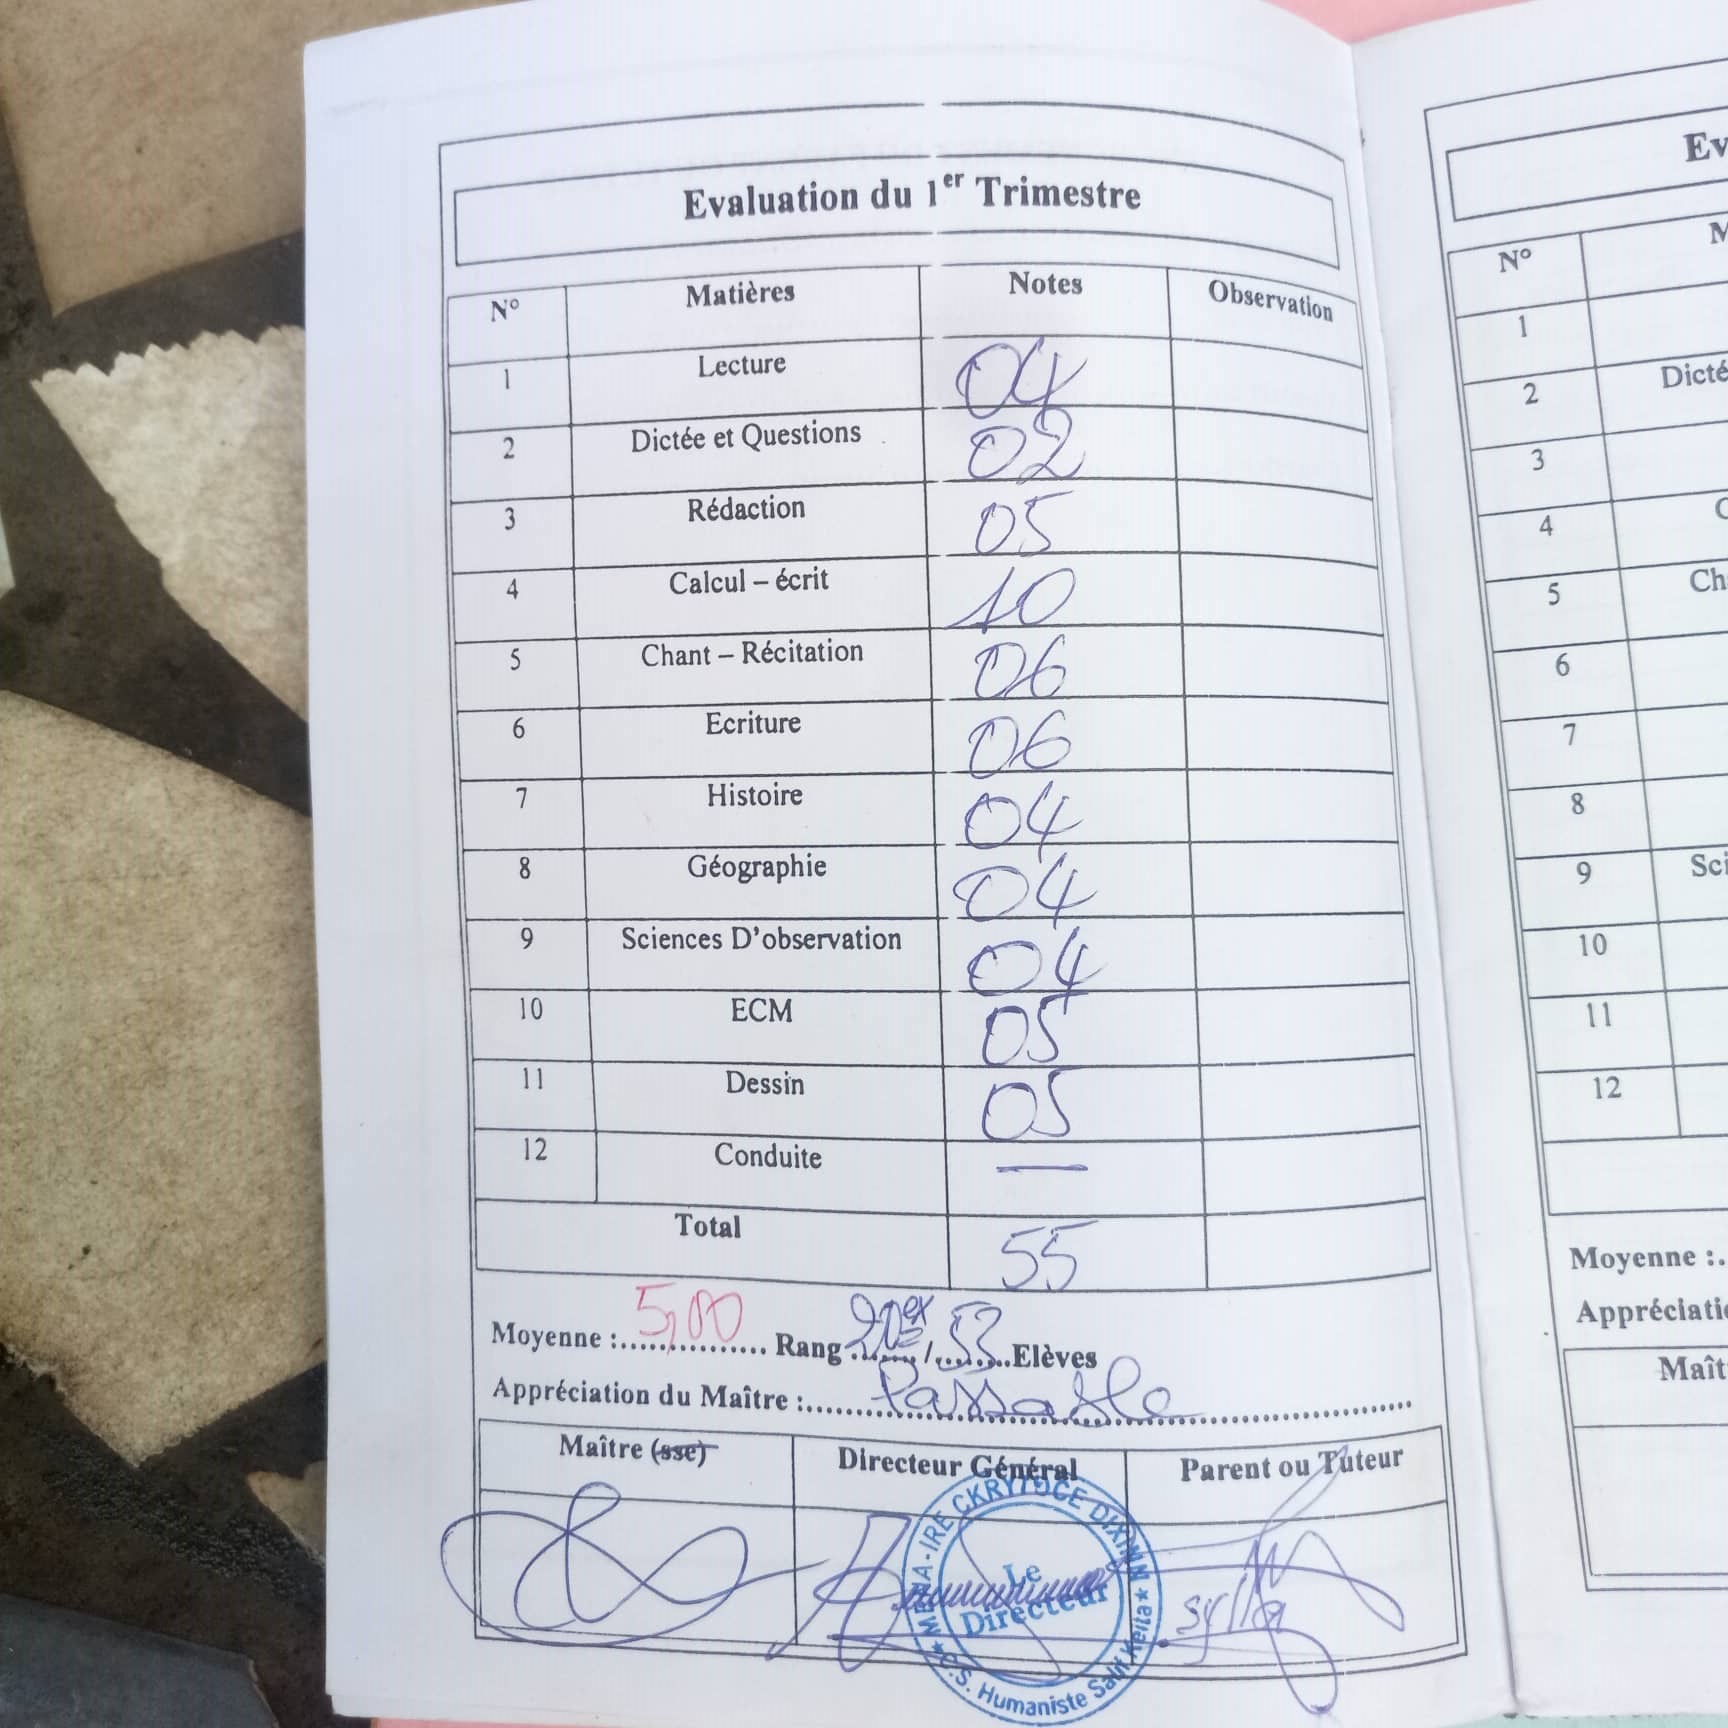 Evaluation du 1er Trimestre
N° Matières Notes Observation
1 Lecture 04
2 Dictée et Questions 02
3 Rédaction 05
4 Calcul – écrit 10
5 Chant – Récitation 06
6 Ecriture 06
7 Histoire 04
8 Géographie 04
9 Sciences D'observation 04
10 ECM 05
11 Dessin 05
12 Conduite —
Total 55
Moyenne : 5,00 Rang 20ex / 53 Elèves
Appréciation du Maître : Passable
Maître (sse) Directeur Général Parent ou Tuteur
Le
Directeur
sylla
C.S. Humaniste Salif Keita
Ev
N° M
1
2 Dicté
3
4 C
5 Ch
6
7
8
9 Sci
10
11
12
Moyenne :
Appréciatio
Maît